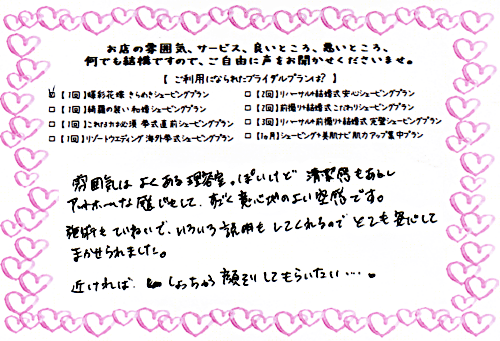 お店の雰囲気、サービス、良いところ、悪いところ、
何でも結構ですので、ご自由に声をお聞かせくださいませ。
【 ご利用になられたブライダルプランは? 】
【1回】曜彩花嫁 きらめきシェービングプラン
【2回】リハーサル+結婚式 安心シェービングプラン
【1回】綺麗の装い 和婚シェービングプラン
【2回】前撮り+結婚式 こだわりシェービングプラン
【1回】これはかみ必須 挙式直前シェービングプラン
【3回】リハーサル+前撮り+結婚式 完璧シェービングプラン
【1回】リゾートウエディング 海外挙式シェービングプラン
【1ヶ月】シェービング+美肌ナビ 肌力アップ集中プラン
雰囲気は よくある理容室っぽいけど 清潔感もあるし
アットホームな感じもして、すごく居心地のよい空間です。
施術も ていねいで、いろいろ説明も してくれるので とても安心して
まかせられました。
近ければ、しょっちゅう 顔そり してもらいたい…。